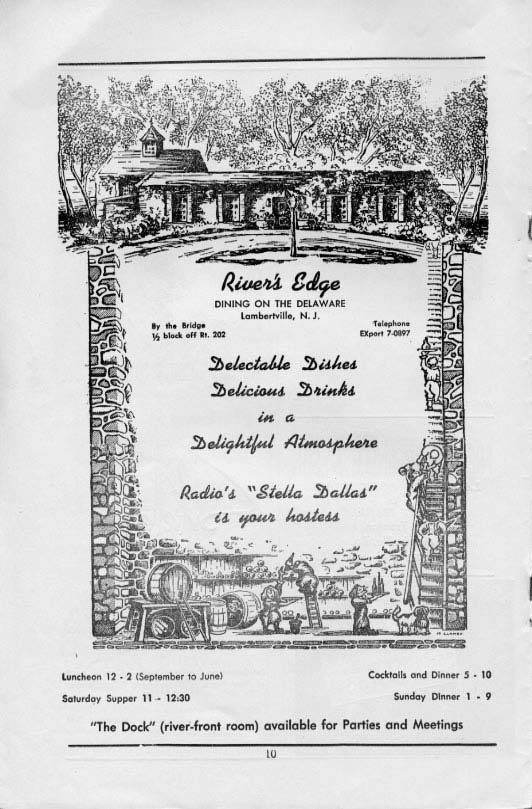 River's Edge
DINING ON THE DELAWARE
Lambertville, N. J.
By the Bridge
½ block off Rt. 202
Telephone
EXport 7-0897
Delectable Dishes
Delicious Drinks
in a
Delightful Atmosphere
Radio's "Stella Dallas"
is your hostess
Luncheon 12 - 2 (September to June)
Cocktails and Dinner 5 - 10
Saturday Supper 11 - 12:30
Sunday Dinner 1 - 9
"The Dock" (river-front room) available for Parties and Meetings
10